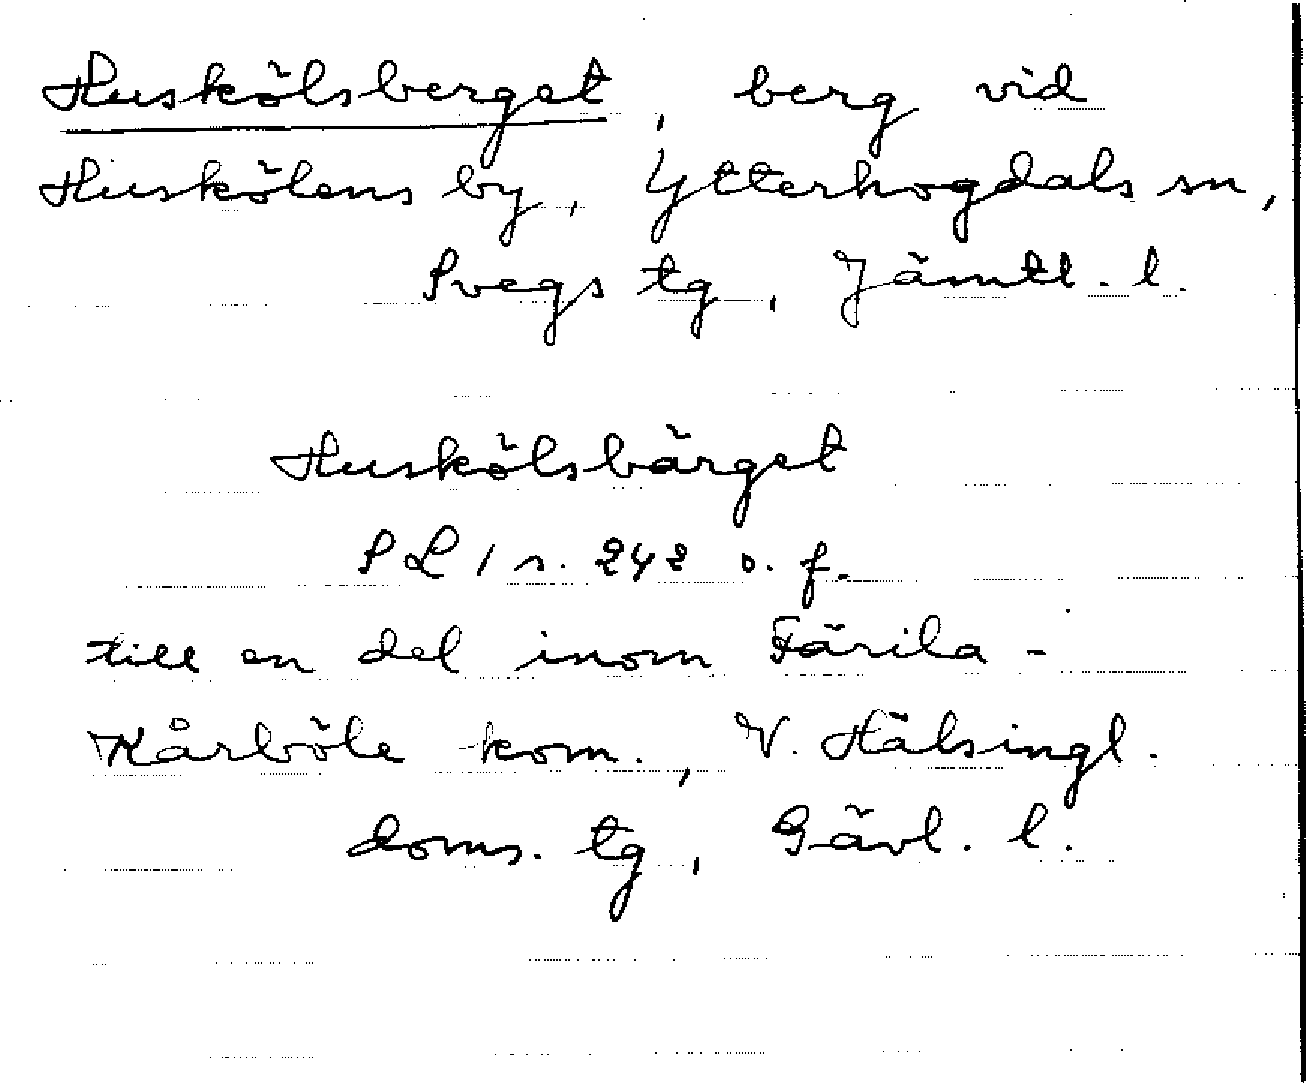 Huskölsberget, berg vid
Huskölens by, Ytterhogdals sn,
Svegs tg, Jämtl. l.
Huskölsbärget
SL 1 s. 242 o. f.
till en del inom Färila-
Kårböle kom., V. Hälsingl.
doms. tg, Gävl. l.